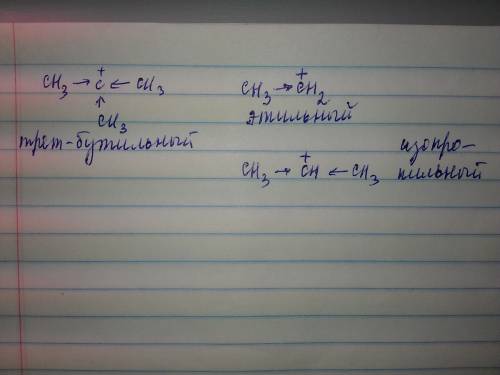 CH₃ → C⁺ ← CH₃
↑
CH₃
трет-бутильный
CH₃ → C⁺H₂
этильный
CH₃ → C⁺H ← CH₃
изопро-
пильный